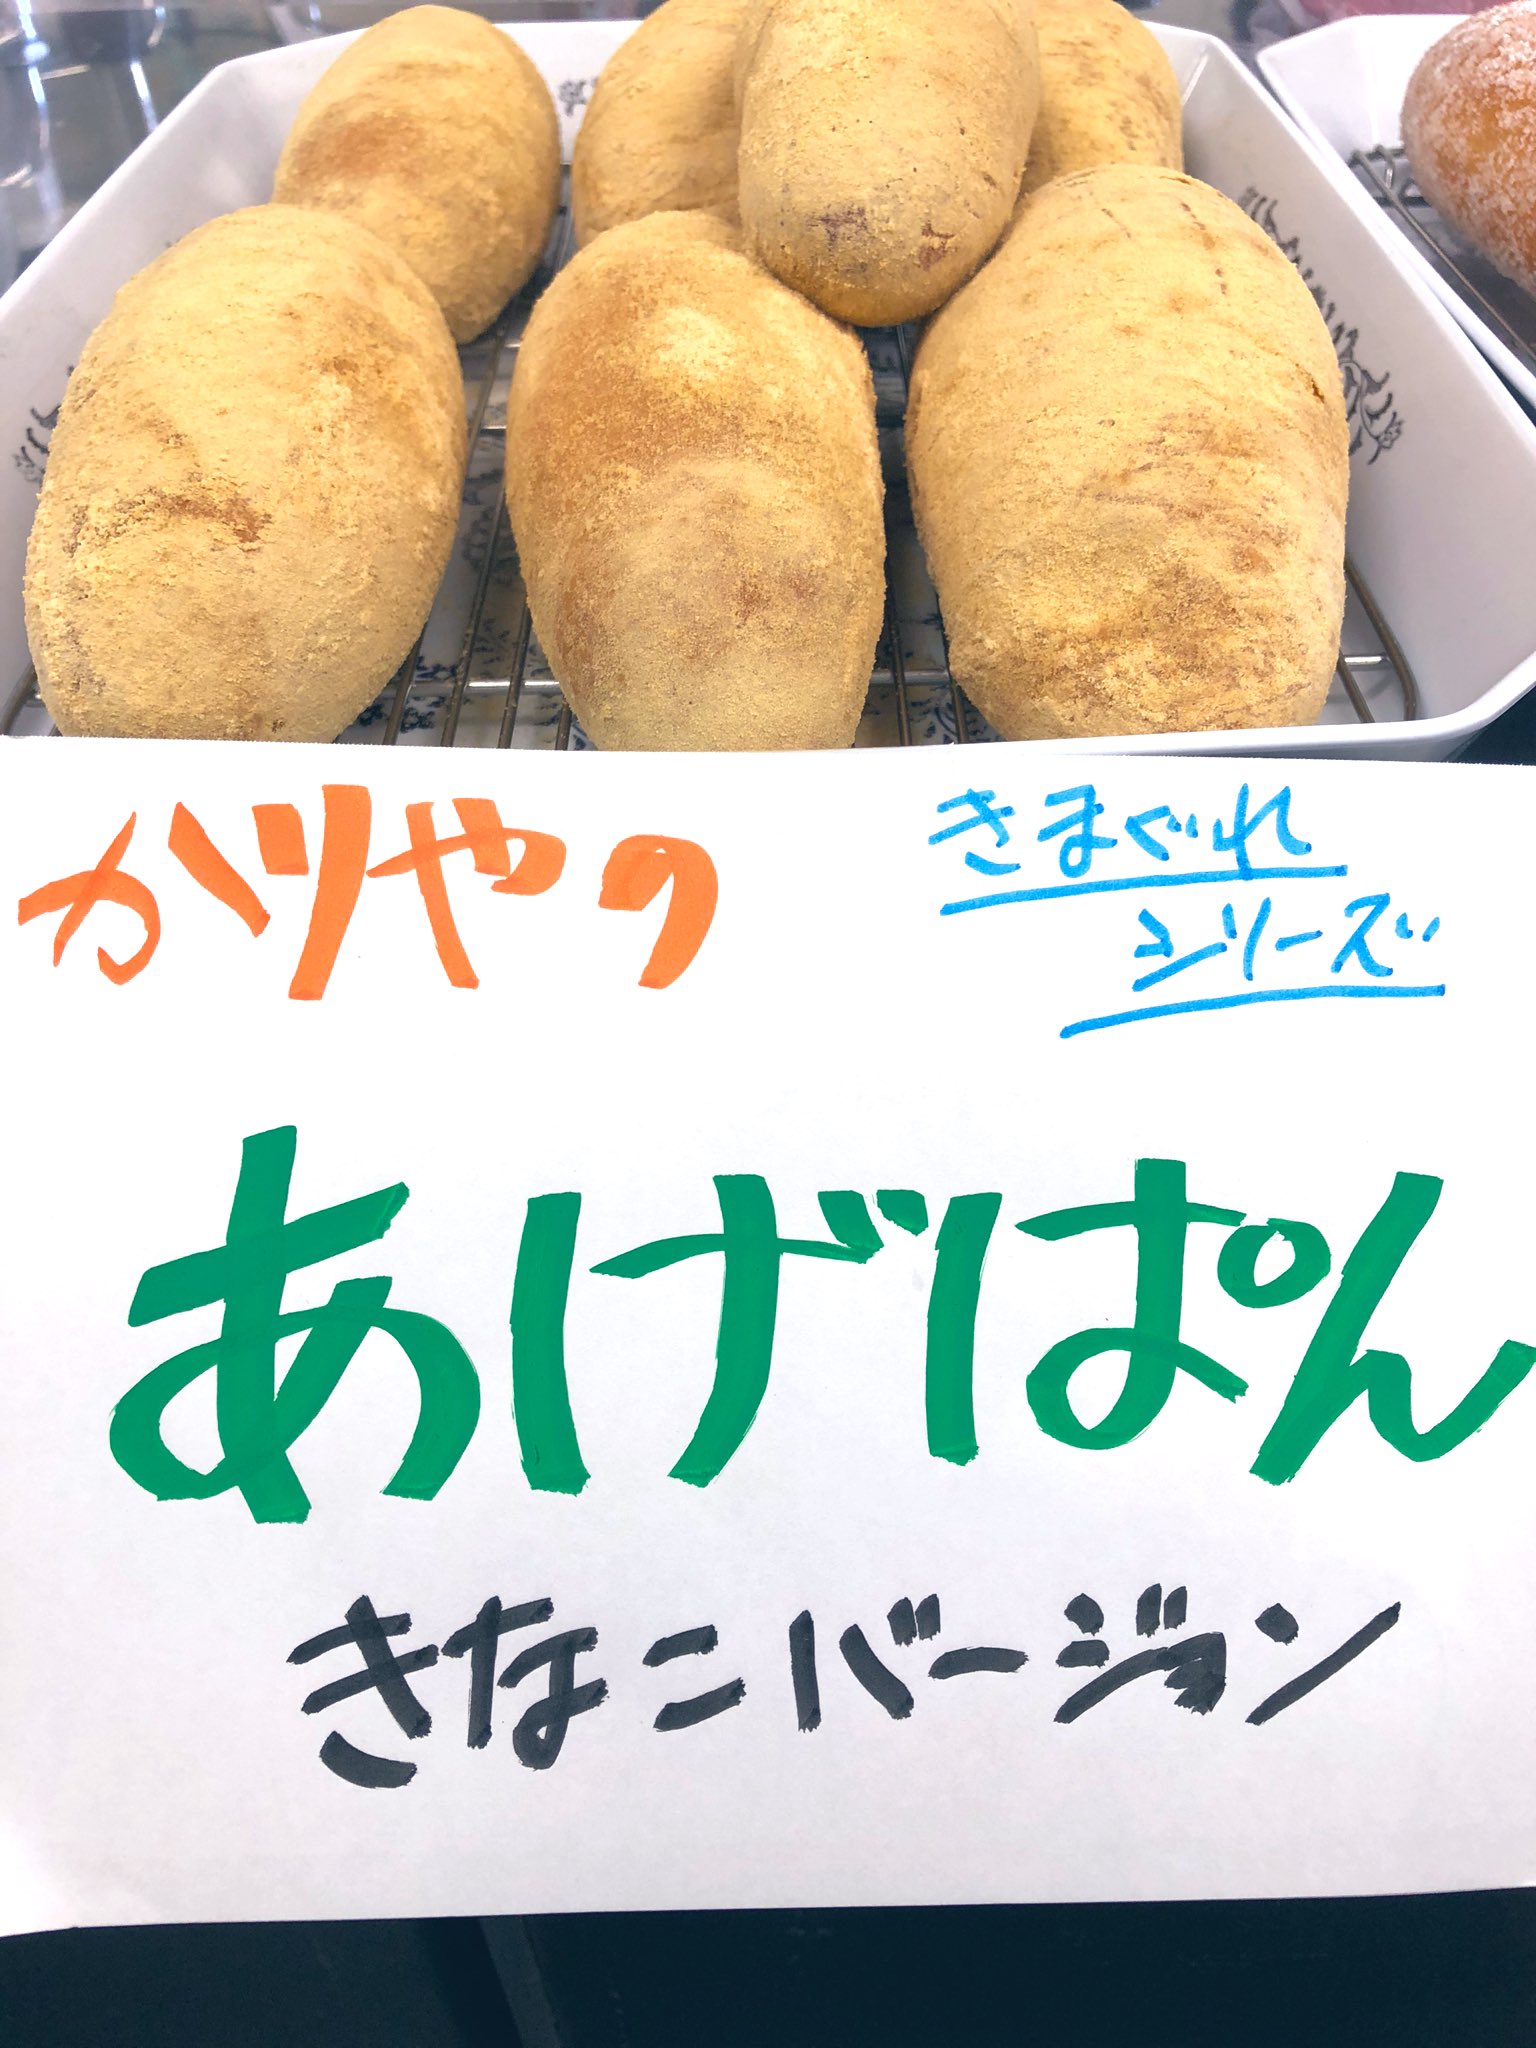 かりやの
きまぐれ
シリーズ
あげぱん
きなこバージョン